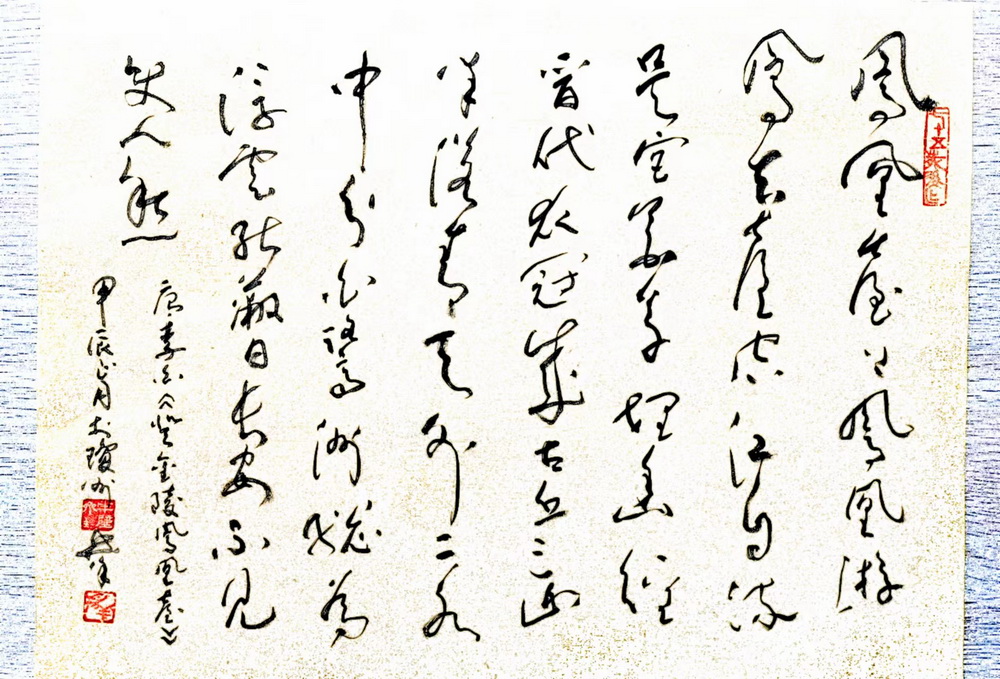 鳳凰臺上鳳凰游
鳳去臺空江自流
吳宮花草埋幽徑
晉代衣冠成古丘三山
半落青天外二水
中分白鷺洲總為
浮雲能蔽日長安不見
使人愁
唐李白《登金陵鳳凰臺》
甲辰月於瓊州